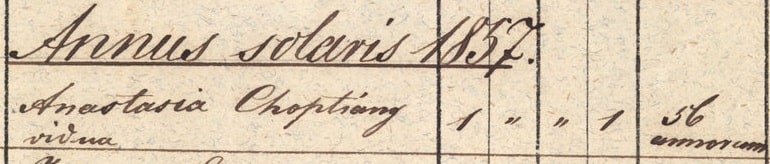 Annus solaris 1857.
Anastasia Choptiány 1 " " 1 56
vidua annorum